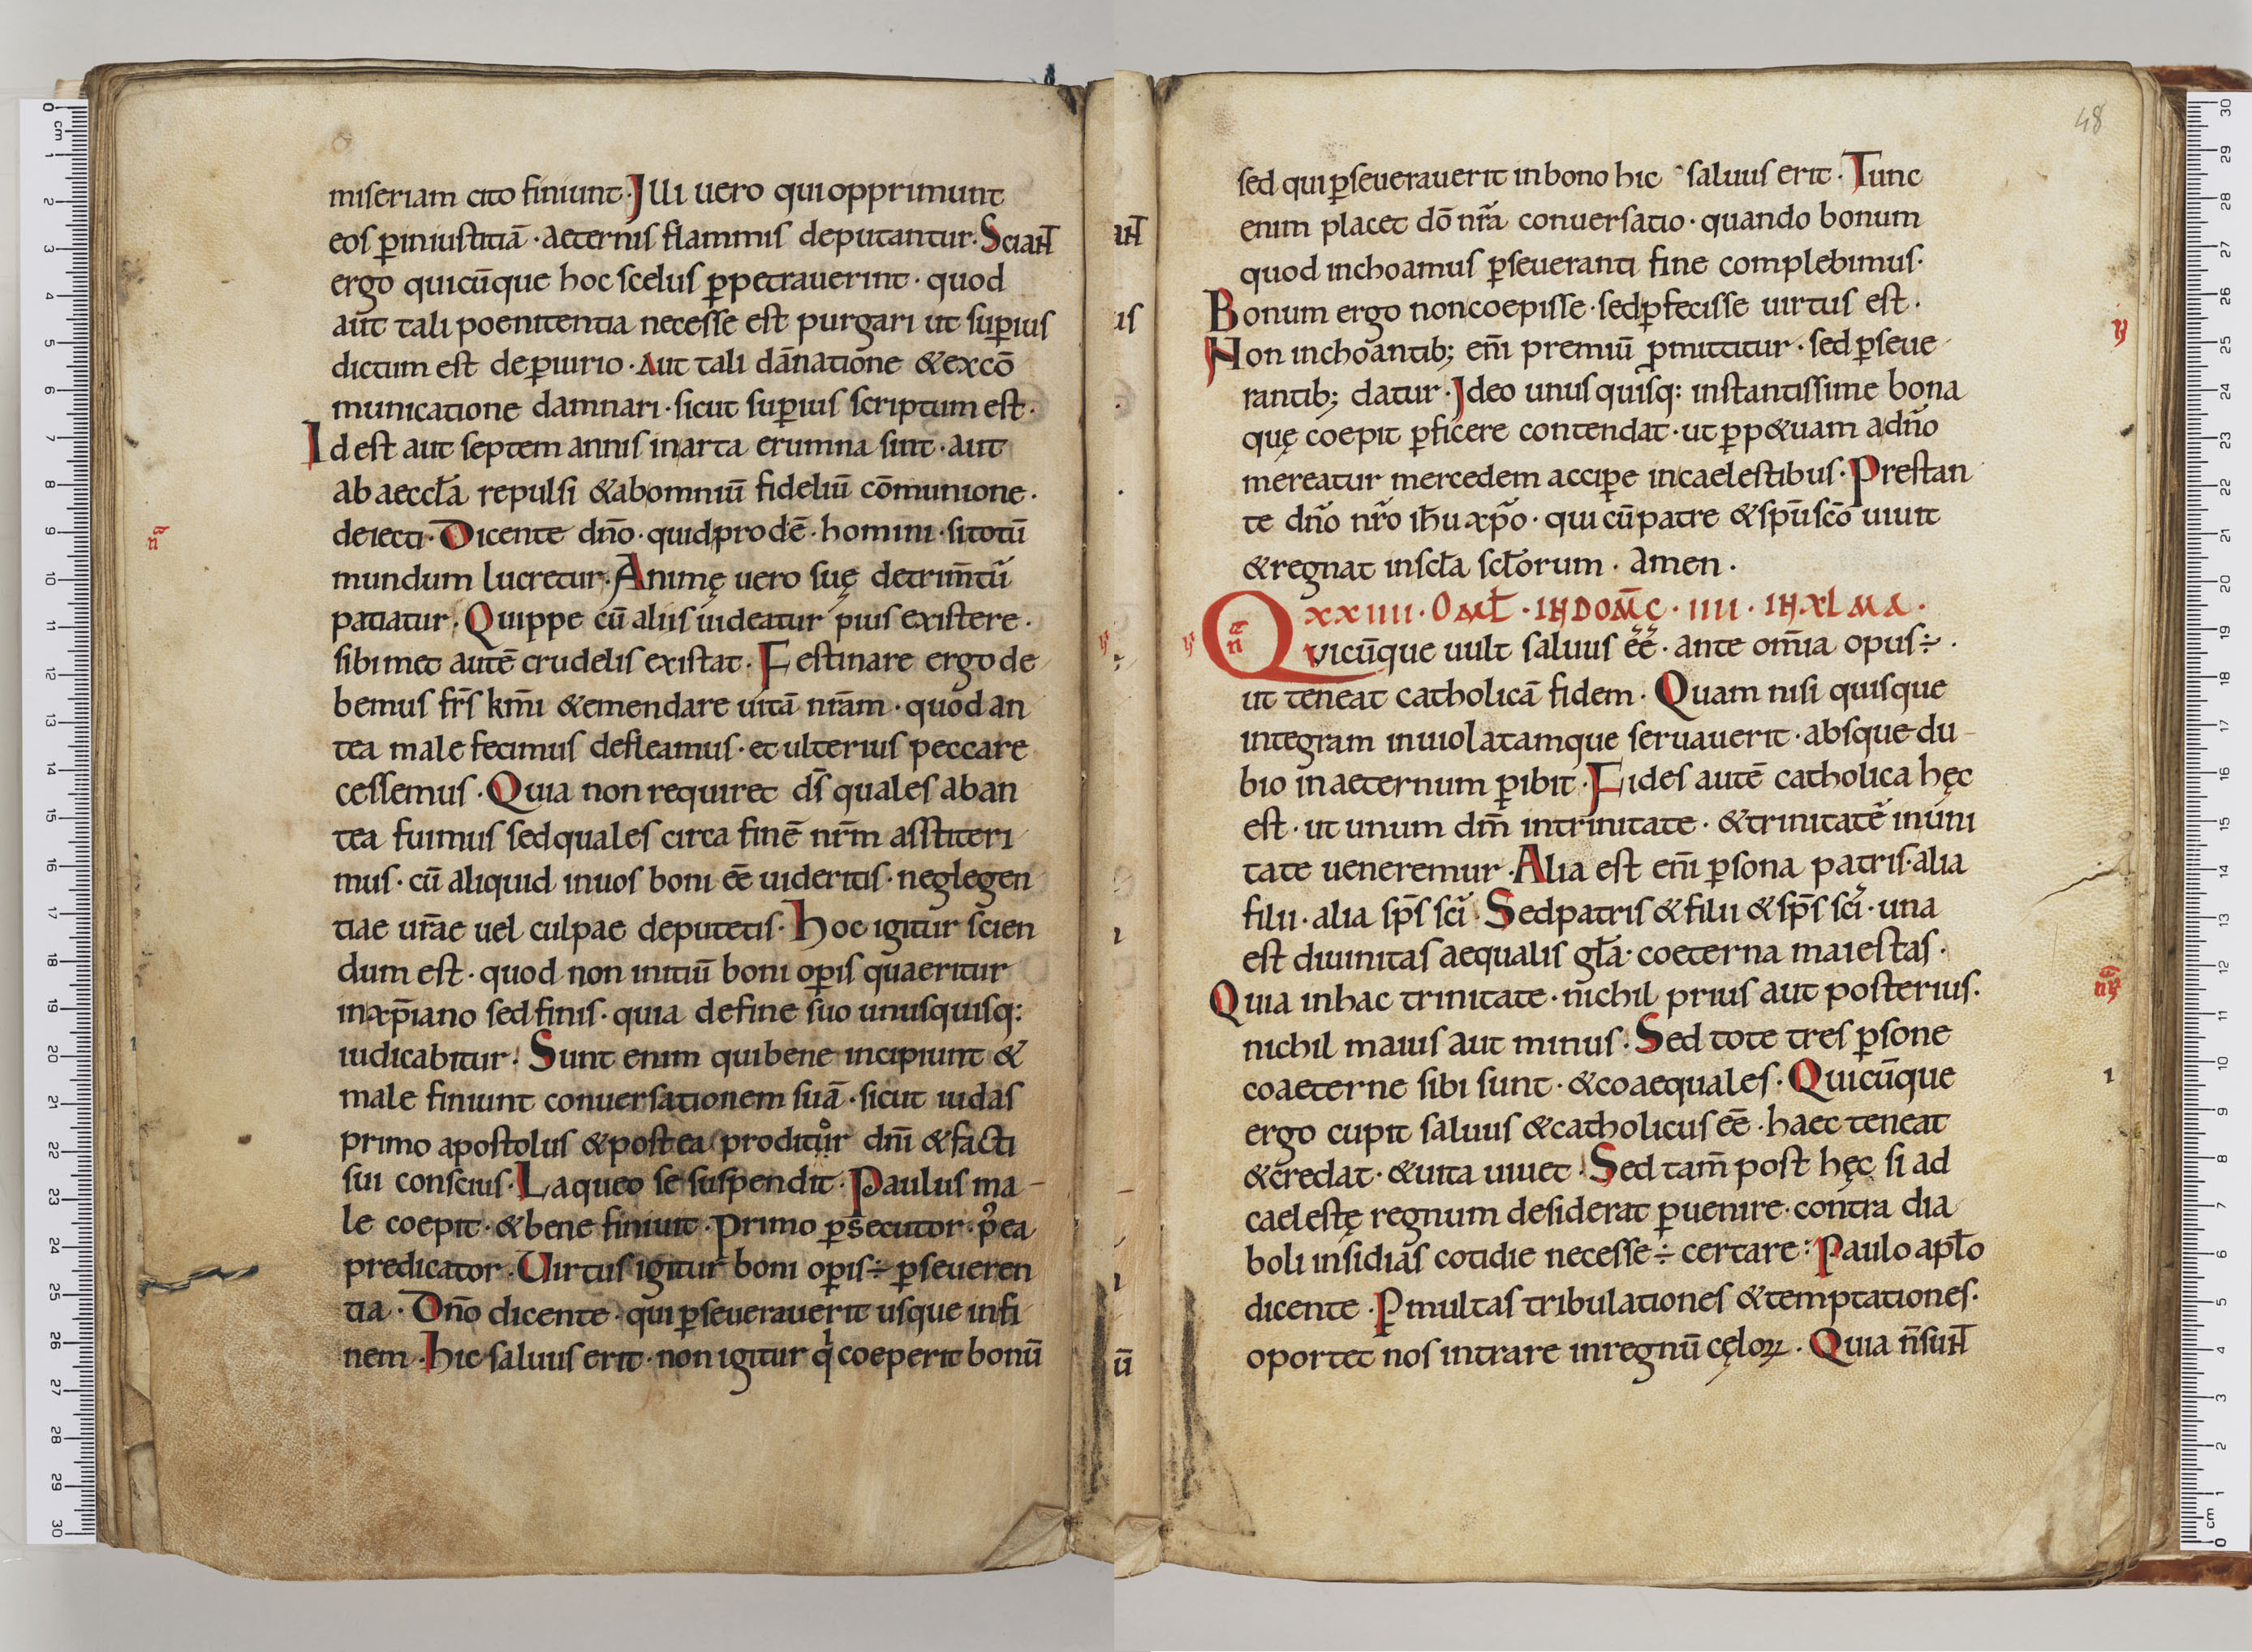 miseriam cito finiunt· Illi uero qui opprimunt
eos ꝑ iniustitiā· aeternis flammis deputantur· Sciant
ergo quicūque hoc scelus ꝑpetrauerint· quod
aut tali poenitentia necesse est purgari ut suꝑius
dictum est de ꝑiurio· Aut tali dānatione & excō
municatione damnari· sicut suꝑius scriptum est·
Id est aut septem annis in arta erumna sint· aut
ab aeccła repulsi & ab omniū fideliū cōmunione·
deiecti· Dicente dn̄o· quid prodē· homini· si totū
mundum lucretur· Animę uero suę detrim̄tū
patiatur· Quippe cū aliis uideatur pius existere·
sibimet autē crudelis existat· Festinare ergo de
bemus fr̄s km̄i & emendare uitā nr̄am· quod an
tea male fecimus defleamus· et ulterius peccare
cessemus· Quia non requiret ds̄ quales aban
tea fuimus sed quales circa finē nr̄m asstiteri
mus· cū aliquid in uos boni eē uideritis· neglegen
tiae ur̄ae uel culpae deputetis· Hoc igitur scien
dum est· quod non initiū boni oꝑis quaeritur
in xp̄iano sed finis· quia de fine suo unusquisq:
iudicabitur· Sunt enim qui bene incipiunt &
male finiunt conuersationem suā· sicut iudas
primo apostolus & postea proditor dn̄i & facti
sui conscius· Laqueo se suspendit· Paulus ma-
le coepit· & bene finiuit· Primo ꝑsecutor· p̾ea
predicator· Uirtus igitur boni oꝑis ÷ ꝑseueren
tia· Dn̄o dicente· qui ꝑseuerauerit usque in fi
nem· Hic saluus erit· non igitur qi coeperit bonū
48
sed qui ꝑseuerauerit in bono hic saluus erit· Tunc
enim placet dō nr̄a conuersatio· quando bonum
quod inchoamus ꝑseueranti fine complebimus·
Bonum ergo non coepisse· sed ꝑfecisse uirtus est·
Non inchoantib; em̄ premiū ꝓmittitur· sed ꝑseue
rantib; datur· Ideo unusquisq: instantissime bona
quę coepit ꝑficere contendat· ut ꝑp&uam a dn̄o
mereatur mercedem acciꝑe in caelestibus· Prestan
te dn̄o nr̄o ih̄u xp̄o· qui cū patre & sp̄u sc̄o uiuit
& regnat in scła scłorum· Amen·
XXIIII· OMŁ· IN DOM̄C· IIII· IN XL MA·
Quicūque uult saluus eē· ante om̄ia opus ÷·
ut teneat catholicā fidem· Quam nisi quisque
integram inuiolatamque seruauerit· absque du-
bio in aeternum ꝑibit· Fides autē catholica hęc
est· ut unum dm̄ in trinitate· & trinitatē in uni
tate ueneremur· Alia est em̄ ꝑsona patris· alia
filii· alia sp̄s sc̄i· Sed patris & filii & sp̄s sc̄i· una
est diuinitas aequalis gła· coeterna maiestas·
Quia in hac trinitate· nichil prius aut posterius·
nichil maius aut minus· Sed tote tres ꝑsone
coaeterne sibi sunt· & coaequales· Quicūque
ergo cupit saluus & catholicus eē· haec teneat
& credat· & uita uiuet· Sed tam̄ post hęc si ad
caelestę regnum desiderat ꝑuenire· contra dia
boli insidias cotidie necesse ÷ certare· Paulo apło
dicente· Ꝑ multas tribulationes & temptationes·
oportet nos intrare in regnū cęloꝝ· Quia n̄ sunt